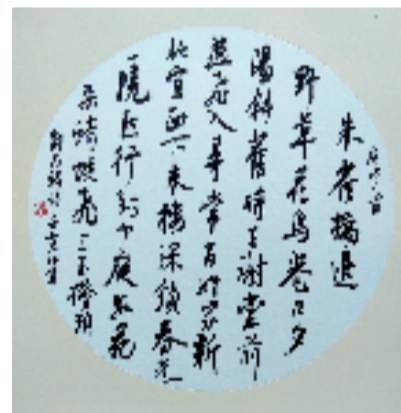 唐詩二首
朱雀橋邊
野草花烏巷口夕
陽斜舊時王謝堂前
燕飛入尋常百姓家新
妝宜面下朱樓深鎖春光
一院愁行到中庭數花
朵蜻蜓飛上玉搔頭
劉禹錫詩